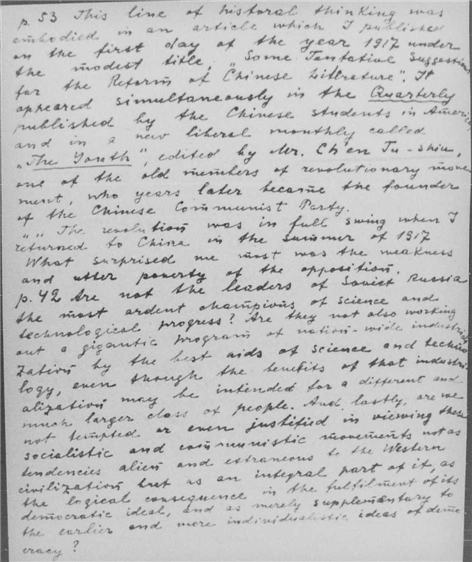 p. 53 This line of historal thinking was
embodied in an article which I published
on the first day of the year 1917 under
the modest title, "Some Tentative Suggestions
for the Reform of Chinese Litterature". It
appeared simultaneously in the Quarterly
published by the Chinese students in America
and in a new liberal monthly called
"The Youth", edited by Mr. Ch'en Tu-shiu,
one of the old members of revolutionary move
ment, who years later became the founder
of the Chinese Communist Party.
" " The revolution was in full swing when I
returned to China in the summer of 1917
What surprised me most was the weakness
and utter poverty of the opposition.
p. 42 Are not the leaders of Soviet Russia
the most ardent champions of science and
technological progress? Are they not also working
out a gigantic program of nation-wide industriali
zation by the best aids of science and techno
logy, even though the benefits of that industri
alization may be intended for a different and
much larger class of people. And, lastly, are we
not tempted or even justified in viewing these
socialistic and communistic movements not as
tendencies alien and extraneous to the Western
civilization but as an integral part of it, as
the logical consequence in the fulfilment of its
democratic ideal, and as merely supplementary to
the earlier and more individualistic ideas of demo
cracy?